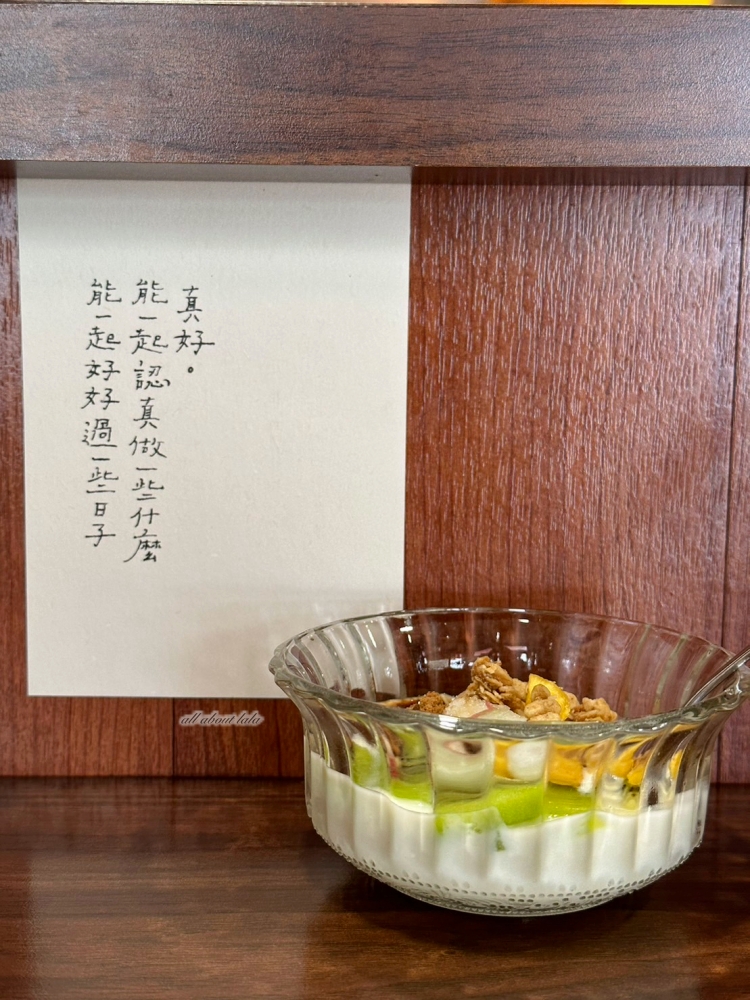 真好。
能一起認真做一些什麼
能一起好好過一些日子
all about lala